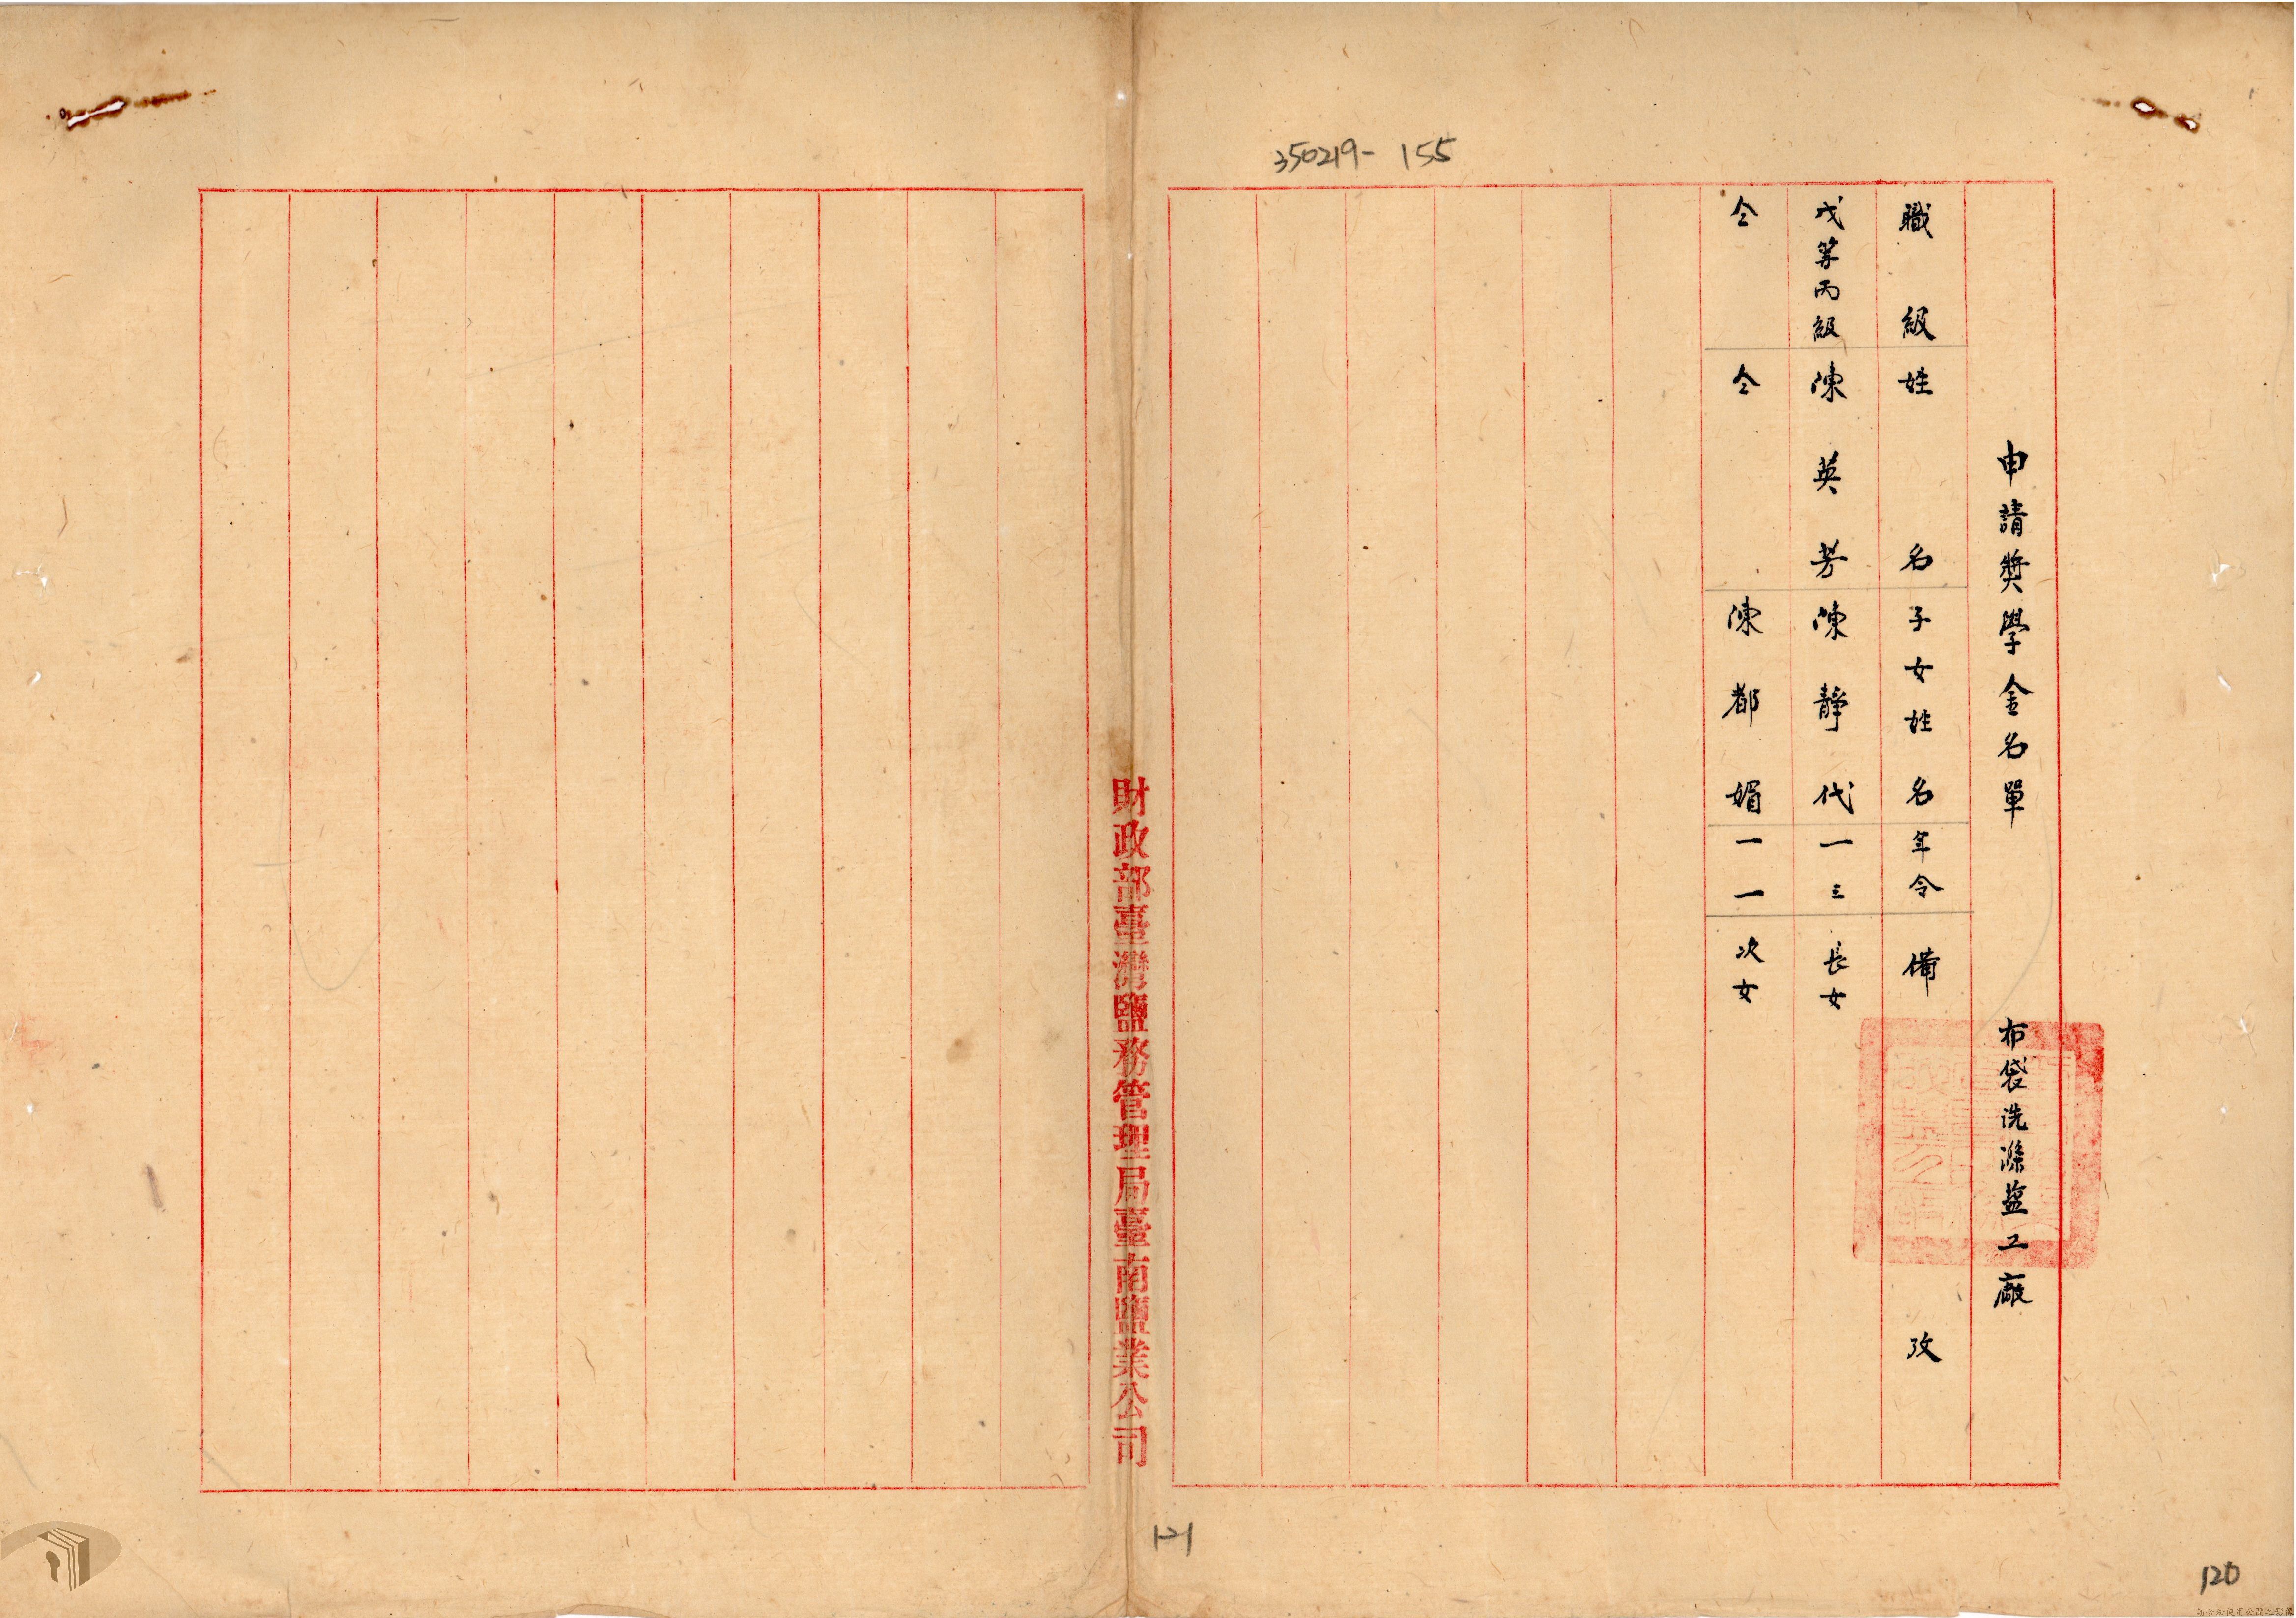 350219-155
申請奬學金名單　布袋洗滌盐工廠
職級　姓名　子女姓名　年令　備攷
戊等丙級　陳英芳　陳靜代　一三　長女
仝　仝　陳都媚　一一　次女
財政部臺灣鹽務管理局臺南鹽業公司
121
120